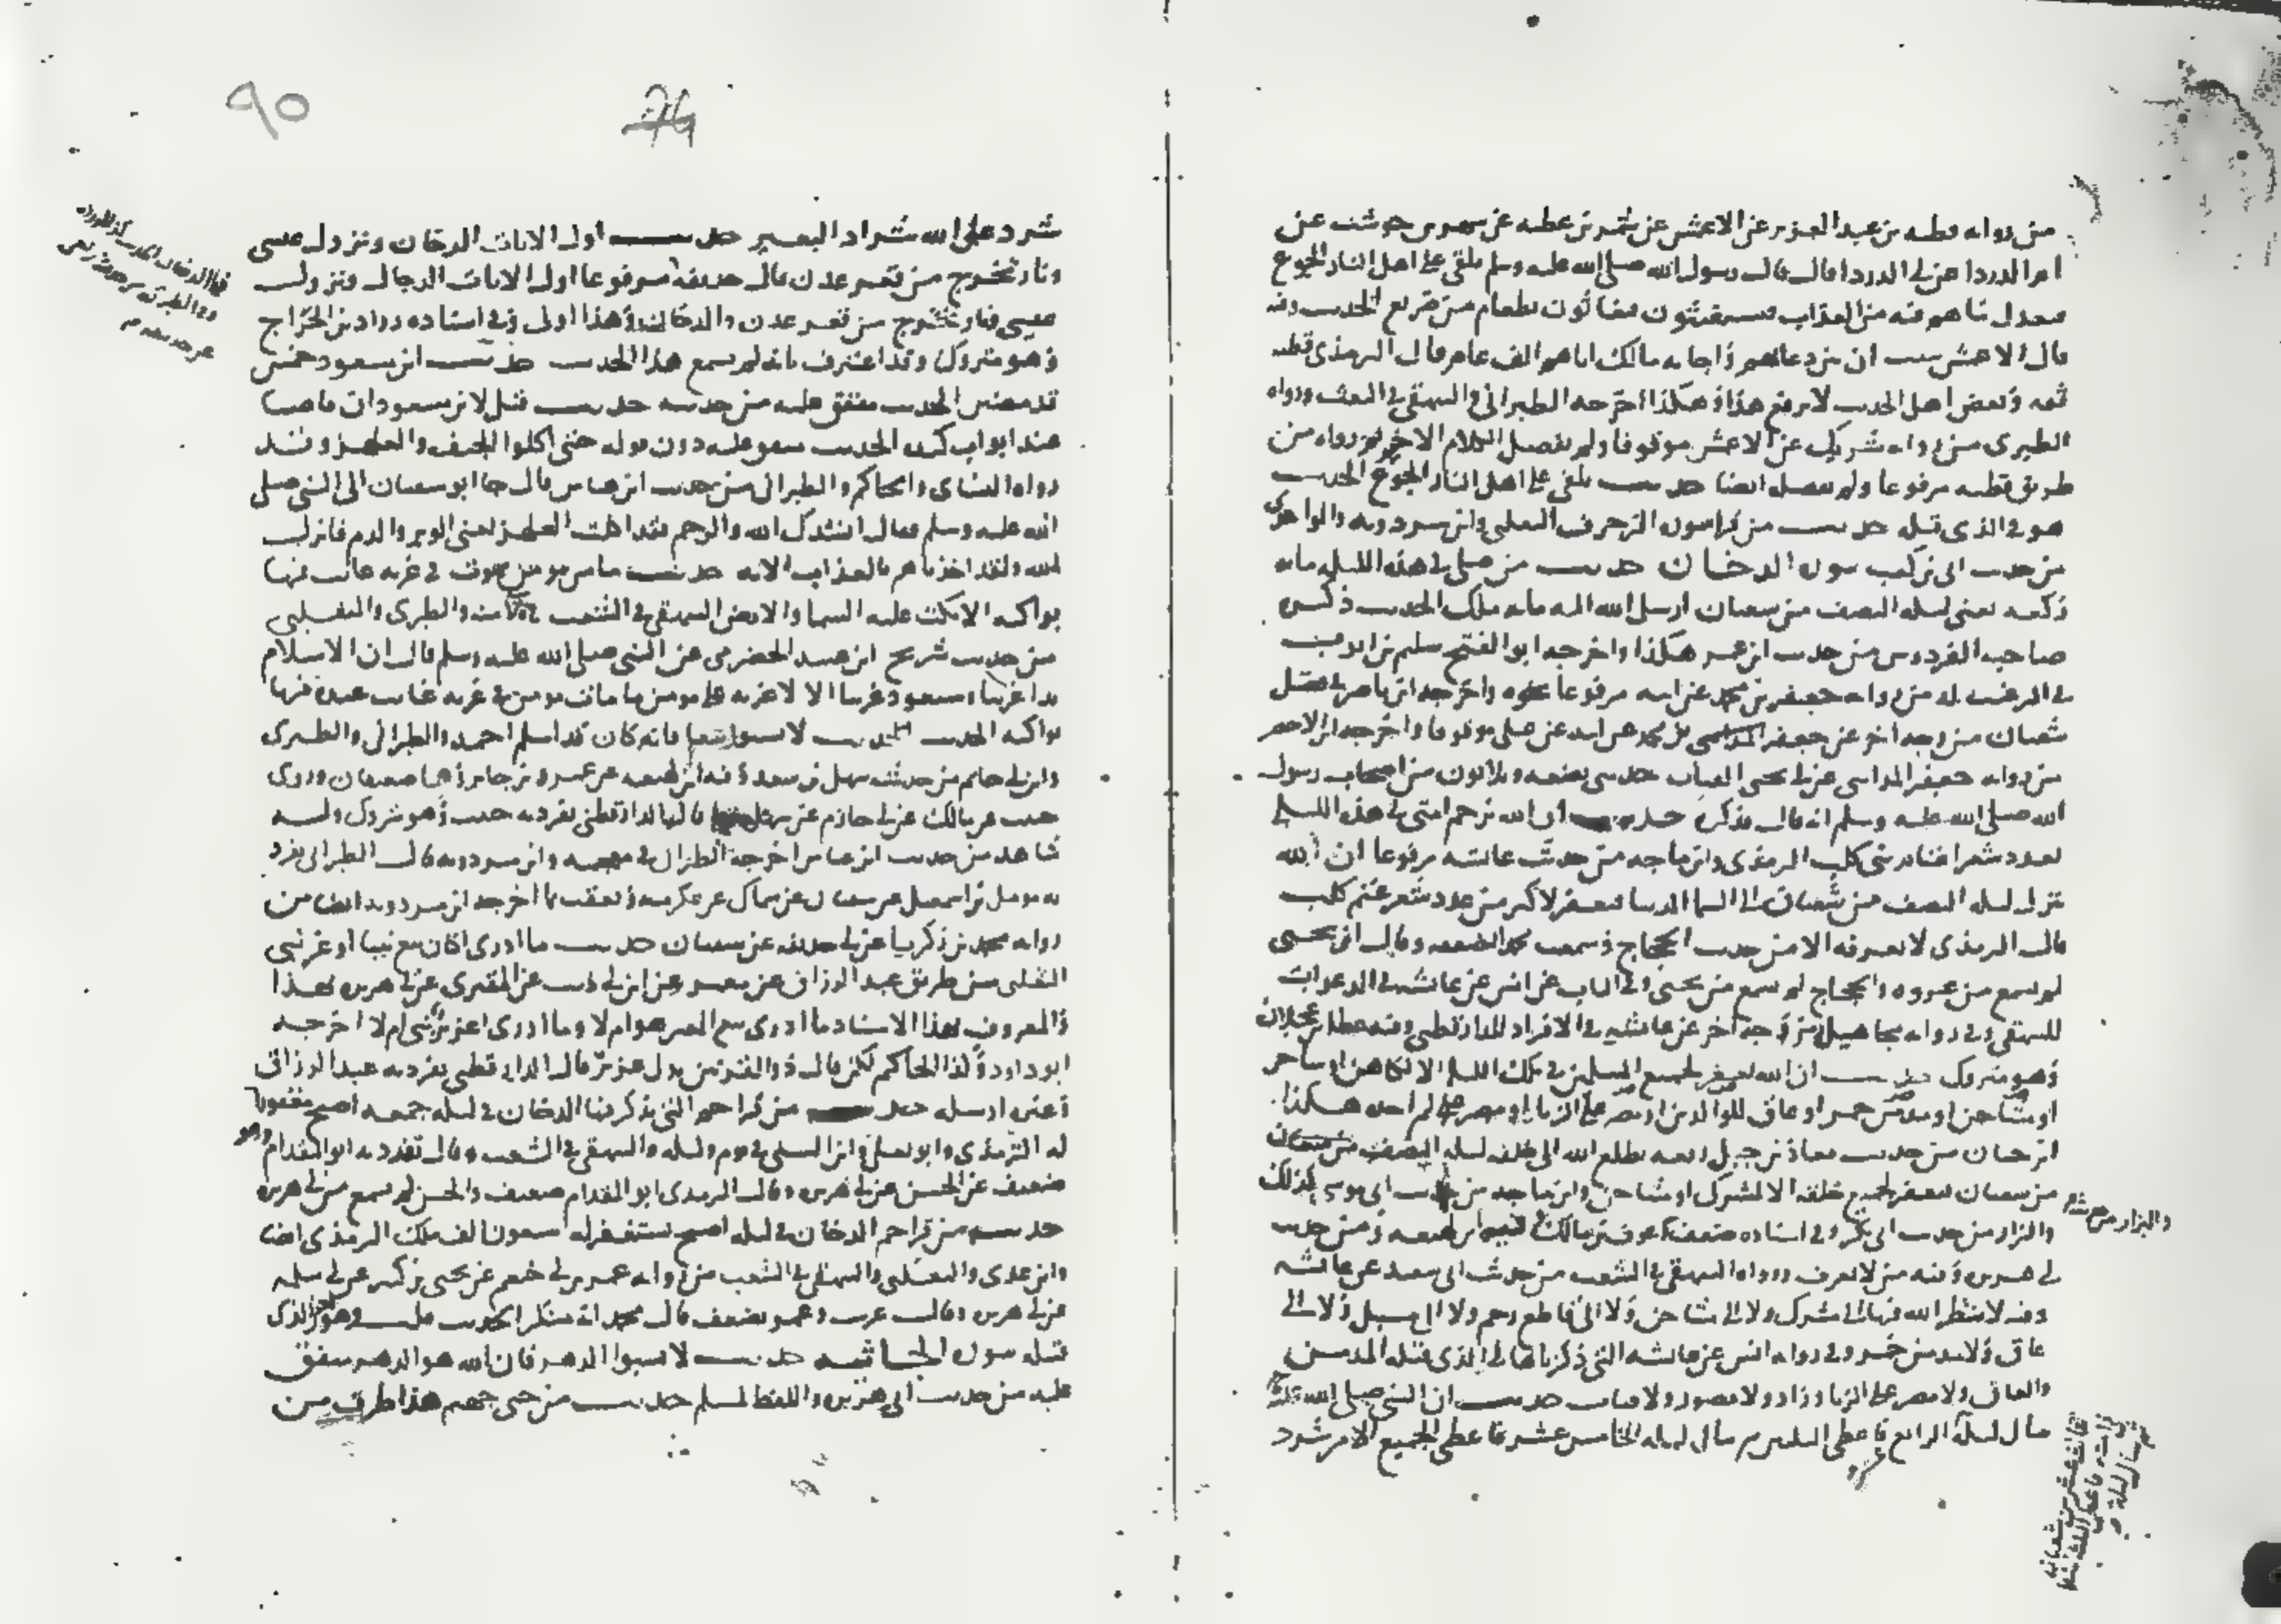 من رواية قطبة بن عبد العزيز عن الاعمش عن شمر بن عطية عن شهر بن حوشب عن
ام الدرداء عن ابي الدرداء قال قال رسول الله صلى الله عليه وسلم يلقى على اهل النار الجوع
فيعدل ما هم فيه من العذاب فيستغيثون فيغاثون بطعام من ضريع الحديث وفيه
قال الاعمش نبئت ان بين دعائهم واجابة مالك اياهم الف عام قال الترمذي قطبة
ثقة وبعض اهل الحديث لا يرفع هذا وهكذا اخرجه الطبراني والبيهقي في البعث ورواه
الطبري من رواية شريك عن الاعمش موقوفا ولم يفصل الكلام الاخير ورواه من
طريق قطبة مرفوعا ولم يفصل ايضا حديث يلقى على اهل النار الجوع الحديث
هو في الذي قبله حديث من قرا سورة الزخرف الثعلبي وابن مردويه والواحدي
من حديث ابي بن كعب سورة الدخان حديث من صلى في هذه الليلة مائة
ركعة يعني ليلة النصف من شعبان ارسل الله اليه مائة ملك الحديث ذكره
صاحب الفردوس من حديث ابن عمر هكذا واخرجه ابو الفتح سليم بن ايوب
في الترغيب له من رواية جعفر بن محمد عن ابيه مرفوعا نحوه واخرجه ابن ناصر في فضل
شعبان من وجه اخر عن جعفر بن محمد عن ابيه عن علي موقوفا واخرجه ابن الاخضر
من رواية جعفر المدايني عن ابي يحيى العتاب حدثني بضعة وثلاثون من اصحاب رسول
الله صلى الله عليه وسلم انه قال فذكره حديث ان الله يرحم امتي في هذه الليلة
بعدد شعر اغنام بني كلب الترمذي وابن ماجه من حديث عائشة مرفوعا ان الله
ينزل ليلة النصف من شعبان الى السماء الدنيا فيغفر لاكثر من عدد شعر غنم كلب
قال الترمذي لا نعرفه الا من حديث الحجاج وسمعت محمدا يضعفه وقال ان يحيى
لم يسمع من عروة والحجاج لم يسمع من يحيى وفي الباب عن انس عن عائشة في الدعوات
للبيهقي وفي رواته مجاهيل ومن وجه اخر عن عائشة في الافراد للدارقطني وفيه عطاء بن عجلان
وهو متروك حديث ان الله يغفر لجميع المسلمين في تلك الليلة الا لكاهن او ساحر
او مشاحن او مدمن خمر او عاق للوالدين او مصر على الزنا لم اجده هكذا
ابن حبان من حديث معاذ بن جبل رفعه يطلع الله الى خلقه ليلة النصف من شعبان
فيغفر لجميع خلقه الا لمشرك او مشاحن وابن ماجه من حديث ابي موسى كذلك
والبزار من حديث ابي بكر وفي اسناده ضعف وعوف بن مالك وفيه ابن لهيعة ومن حديث
ابي هريرة وفيه من لا يعرف ورواه البيهقي في الشعب من حديث ابي سعيد عن عائشة
وفيه لا ينظر الله فيها الى مشرك ولا الى مشاحن ولا الى قاطع رحم ولا الى مسبل ولا الى
عاق ولا مدمن خمر وفي رواية انس عن عائشة التي ذكرناها في الذي قبله المدمن
والعاق ولا مصر على الزنا وزاد ولا مصور ولا قتات حديث ان النبي صلى الله عليه
سال ليلة الرابع فاعطي الثلثين ثم سال ليلة الخامس عشر فاعطي الجميع الا من شرد
والبزار من
٩٥
74
شرد على الله شراد البعير حديث اول الايات الدخان ونزول عيسى
ونار تخرج من قعر عدن قال حذيفة مرفوعا اول الايات الدجال ونزول
عيسى ونار تخرج من قعر عدن والدخان وهذا اولى وفي اسناده رواد بن الجراح
وهو متروك وقد اعترف بانه لم يسمع هذا الحديث حديث ابن مسعود خمس
قد مضين الحديث متفق عليه من حديثه حديث قيل لابن مسعود ان قاصا
عند ابواب كندة الحديث متفق عليه دون قوله حتى اكلوا الجيف والعلهز وقد
رواه النسائي والحاكم والطبراني من حديث ابن عباس قال جاء ابو سفيان الى النبي صلى
الله عليه وسلم فقال انشدك الله والرحم فقد اكلت العلهز يعني الوبر والدم فانزل
الله ولقد اخذناهم بالعذاب الاية حديث ما من مومن يموت في غربة غابت فيها
بواكيه الا بكت عليه السماء والارض البيهقي في الشعب والطبري والثعلبي
من حديث شريح ابن عبيد الحضرمي عن النبي صلى الله عليه وسلم قال ان الاسلام
بدا غريبا وسيعود غريبا الا لا غربة على مومن ما مات مومن في غربة غابت عنه فيها
بواكيه الحديث حديث لا تسبوا تبعا فانه كان قد اسلم احمد والطبراني والطبري
وابن ابي حاتم من حديث سهل بن سعد وفيه ابن لهيعة عن عمرو بن جابر وهما ضعيفان وروى
حديث عن مالك عن ابي حازم عن سهل قال الدارقطني تفرد به حبيب وهو متروك وله
شاهد من حديث ابن عباس اخرجه الطبراني في معجمه وابن مردويه قال الطبراني تفرد
به مومل بن اسمعيل عن سفيان عن سماك عن عكرمة وتعقب بما اخرجه ابن مردويه ايضا من
رواية محمد بن زكريا عن ابي حذيفة عن سفيان حديث ما ادري اكان تبع نبيا او غير نبي
الثعلبي من طريق عبد الرزاق عن معمر عن ابن ابي ذئب عن المقبري عن ابي هريرة بهذا
والمعروف بهذا الاسناد ما ادري تبع العين هو ام لا وما ادري اعزير نبي ام لا اخرجه
ابو داود وكذا الحاكم لكن قال ذو القرنين بدل عزير قال الدارقطني تفرد به عبد الرزاق
وغيره ارسله حديث من قرا حم التي يذكر فيها الدخان في ليلة جمعة اصبح مغفورا
له الترمذي وابو يعلى وابن السني في يوم وليلة والبيهقي في الشعب وقال تفرد به ابو المقدام وهو
ضعيف عن الحسن عن ابي هريرة وقال الترمذي ابو المقدام ضعيف والحسن لم يسمع من ابي هريرة
حديث من قرا حم الدخان في ليلة اصبح يستغفر له سبعون الف ملك الترمذي ايضا
وابن عدي والثعلبي والبيهقي في الشعب من رواية عمر بن ابي خثعم عن يحيى بن كثير عن ابي سلمة
عن ابي هريرة وقال غريب وعمر يضعف قال محمد انه منكر الحديث قلت وهو الذي
قبله سورة الجاثية حديث لا تسبوا الدهر فان الله هو الدهر متفق
عليه من حديث ابي هريرة واللفظ لمسلم حديث من جثى جهنم هذا طرف من